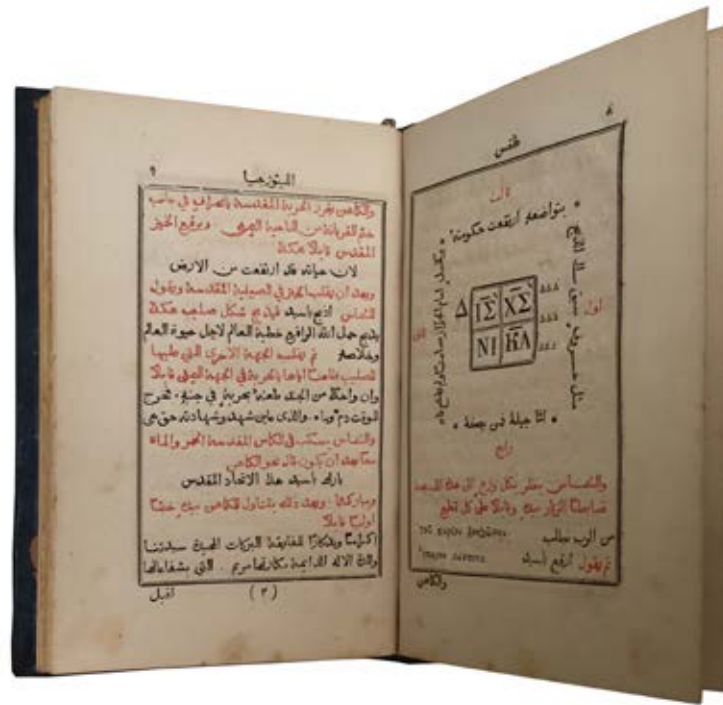 ٨
طقس
ثالث
* بتواضعه ارتفعت حكومته *
اول
ثاني
Δ
ΙΣ ΧΣ
ΝΙ ΚΑ
* اما جيله فمن يصفه *
رابع
من الرب نطلب
ثم يقول ارفع ياسيد
والكاهن
٩
الليتورجيا
والكاهن يغرز الحربة المقدسة بانحراف في جانب
ختم القربانة من الناحية اليمنى ويرفع الخبز
المقدس قايلا هكذا
لان حياته قد ارتفعت من الارض
وبعد ان يقلب الخبز في الصينية المقدسة ويقول
الشماس اذبح ياسيد فيذبح شكل صليب هكذا
يذبح حمل الله الرافع خطية العالم لاجل حيوة العالم
وخلاصه ثم يقلب الجهة الاخرى التي عليها
الصليب طاعنا اياها بالحربة في الجهة اليمنى قايلا
وان واحدا من الجند طعنه بحربة في جنبه فخرج
للوقت دم وماء والذي عاين شهد وشهادته حق هي
والشماس يسكب في الكاس المقدسة الخمر والماء
معا بعد ان يكون قال نحو الكاهن
بارك ياسيد هذا الاتحاد المقدس
ويباركها وبعد ذلك يتناول الكاهن بيده خبزا
اوليا قايلا
اكراما وتذكارا للفايقة البركات المجيدة سيدتنا
والدة الاله الدايمة بكارتها مريم التي بشفاعاتها
(٣)
اقبل